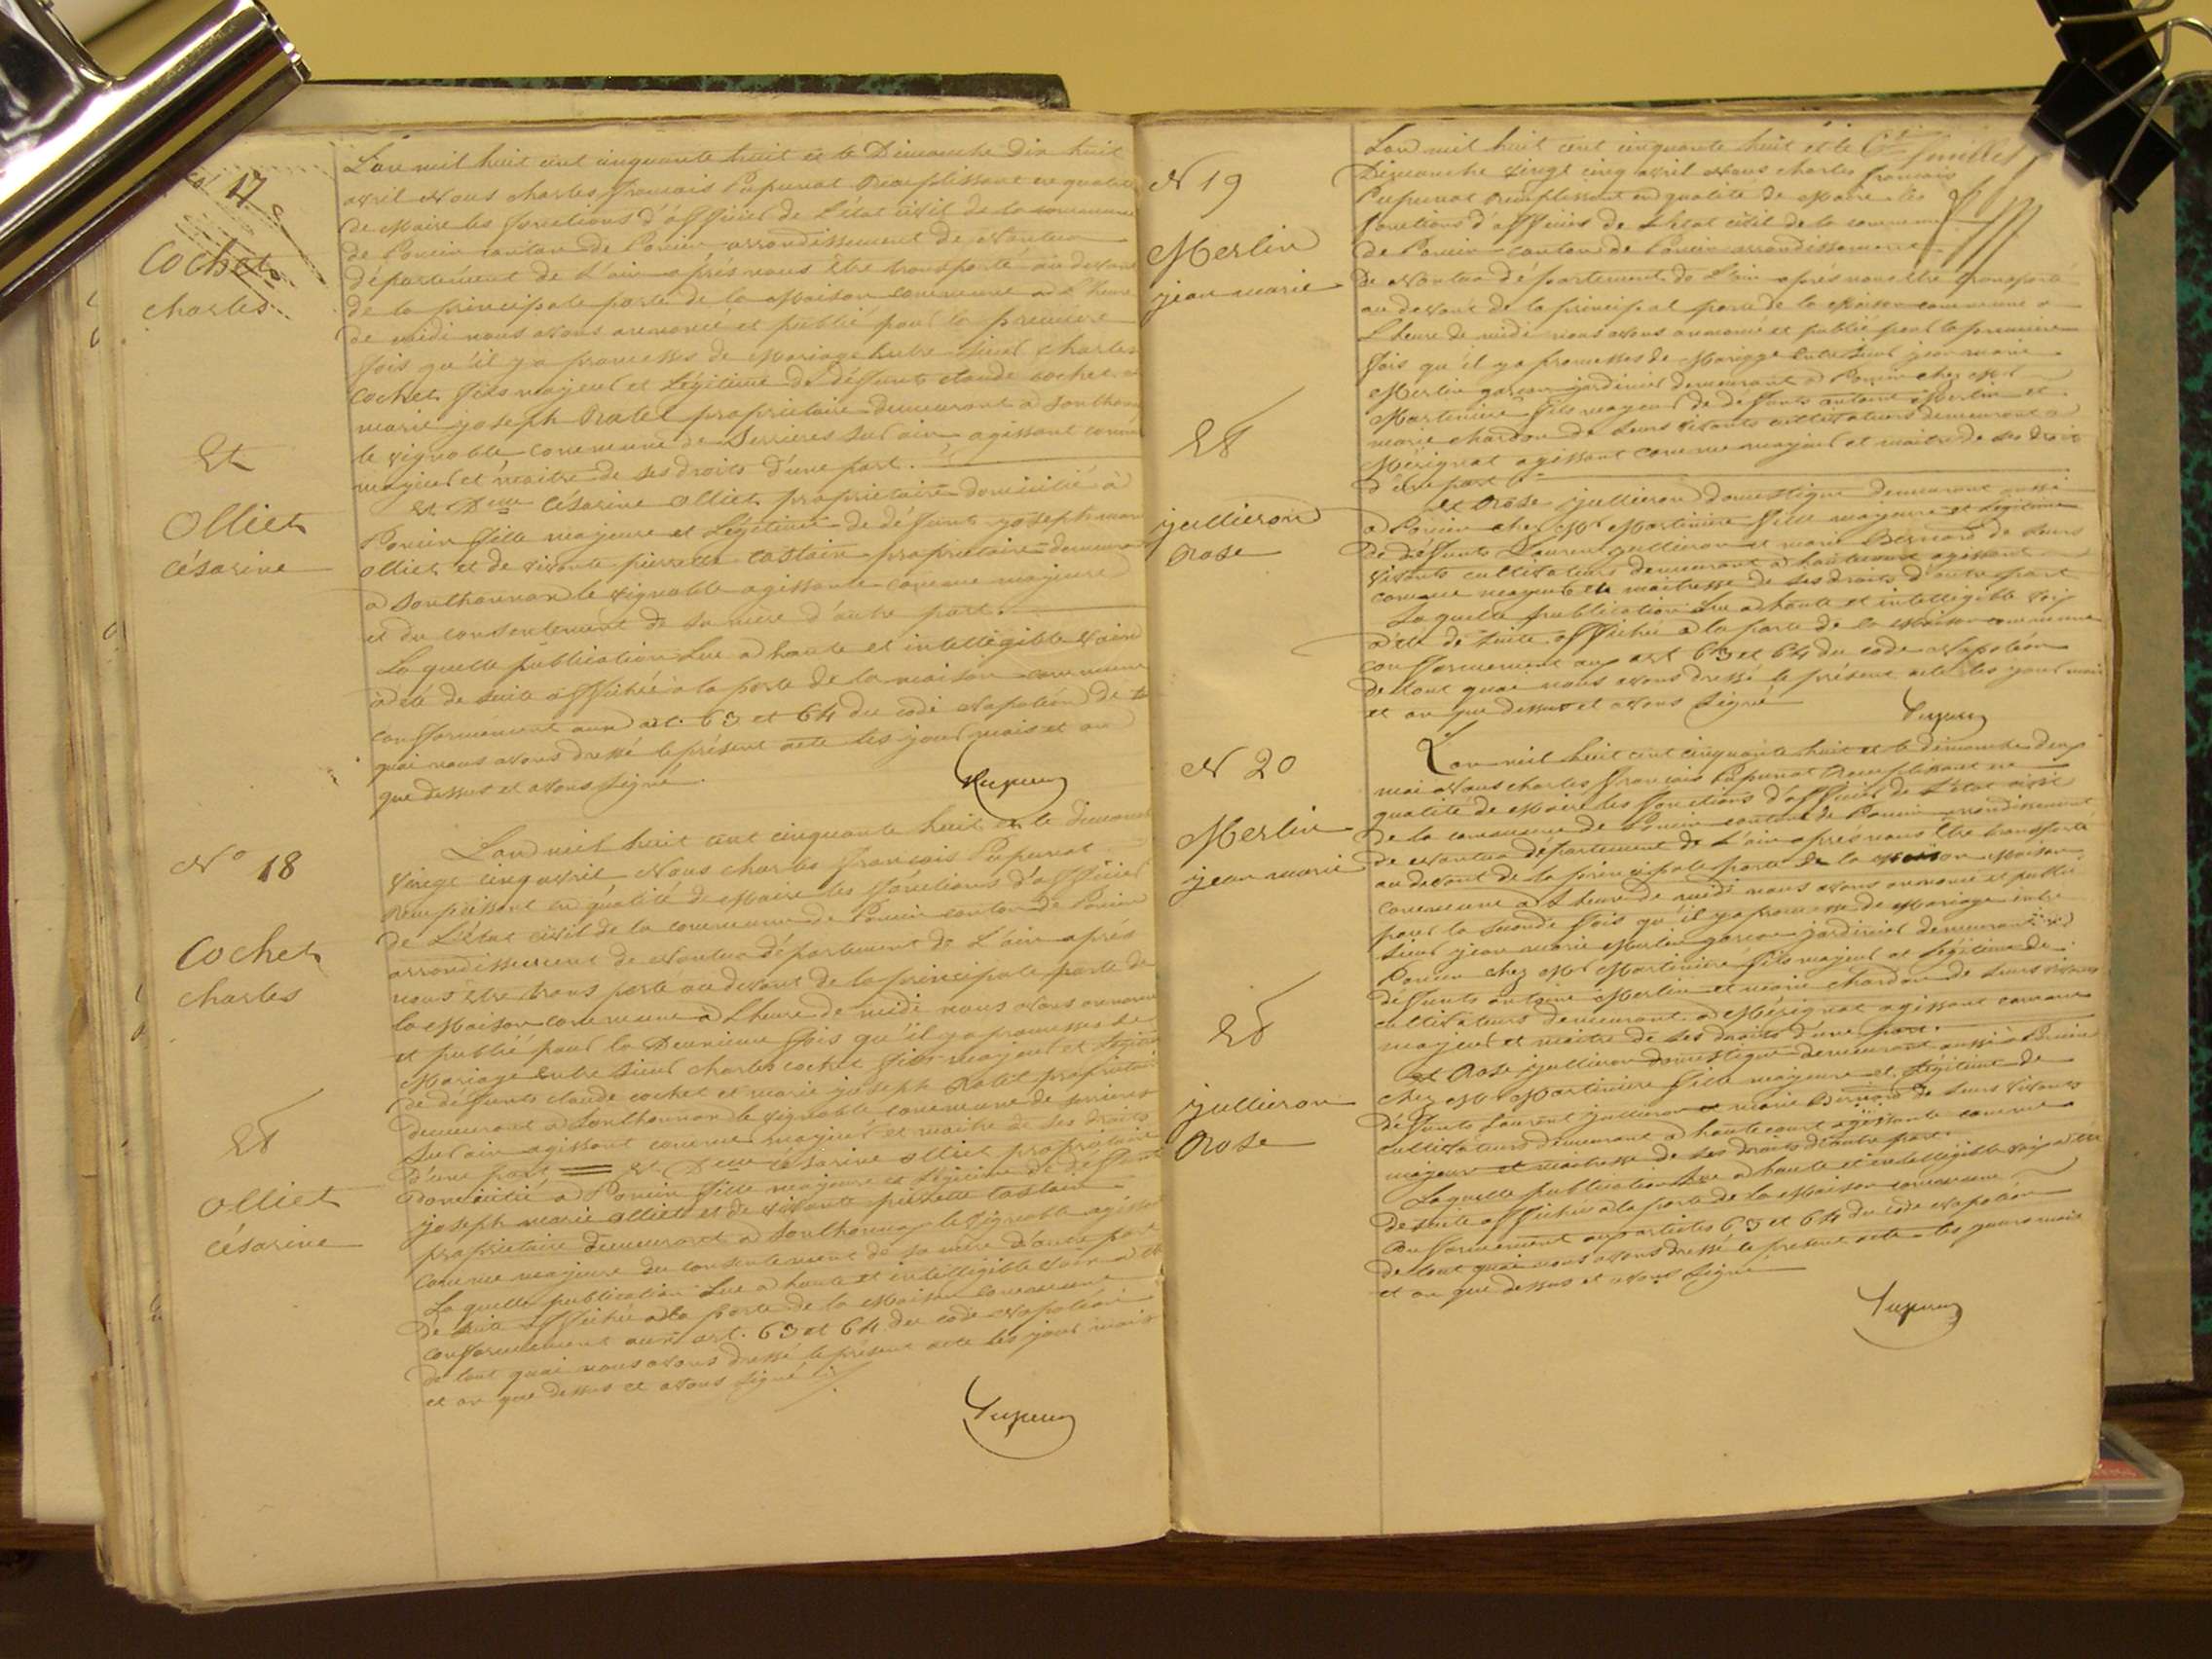 No 17
Cochet
charles
Et
Olliet
césarine
L'an mil huit cent cinquante huit et le Dimanche dix huit
avril Nous charles francais Pupunat Remplissant en qualité
de Maire les fonctions d'officier de L'état civil de la commune
de Poncin canton de Poncin arrondissement de Nantua
département de L'ain après nous être transporté au devant
de la principale porte de la Maison commune a L'heure
de midi nous avons annoncé et publié pour la premiere
fois qu'il y a promesses de Mariage Entre sieur charles
Cochet fils majeur et Légitime de défunts claude cochet et
marie joseph Ratel propriétaire demeurant a Sonthonnax
le vignoble commune de Serrieres sur ain agissant comme
majeur et maitre de ses droits d'une part.
Et Delle Césarine Olliet propriétaire domicilié à
Poncin fille majeure et Légitime de défunt joseph marie
Olliet et de vivante pierrette Castain propriétaire demeurant
a Sonthonnax le vignoble agissante comme majeure
et du consentement de sa mère d'autre part.
La quelle publication Lue a haute et intelligible voix
à été de suite affichée a la porte de la maison commune
conformément aux art. 63 et 64 du code Napoléon de tout
quoi nous avons dressé le présent acte les jour mois et an
que dessus et avons signé
Pupunat
No 18
Cochet
charles
Et
Olliet
césarine
L'an mil huit cent cinquante huit et le dimanche
vingt cinq avril Nous charles francois Pupunat
Remplissant en qualité de Maire les fonctions d'officier
de L'état civil de la commune de Poncin canton de Poncin
arrondissement de Nantua département de L'ain après
nous être transporté au devant de la principale porte de
la Maison commune à L'heure de midi nous avons annoncé
et publié pour la Deuxieme fois qu'il y a promesses de
Mariage Entre sieur charles cochet fils majeur et Légitime
de défunts claude cochet et marie joseph Ratel propriétaire
demeurant a Sonthonnax le vignoble commune de serrieres
sur ain agissant comme majeur et maitre de ses droits
d'une part Et Delle césarine olliet propriétaire
domicilié a Poncin fille majeure et Légitime de défunt
joseph marie olliet et de vivante pierrette Castain
propriétaire demeurant a Sonthonnax le vignoble agissante
comme majeure du consentement de sa mère d'autre part
La quelle publication Lue a haute et intelligible voix a été
de suite affichée a la porte de la Maison commune
conformement aux art. 63 et 64 du code Napoléon
de tout quoi nous avons dressé le présent acte les jour mois
et an que dessus et avons signé
Pupunat
N 19
Merlin
jean marie
Et
jullieron
Rose
L'an mil huit cent cinquante huit et le
Dimanche vingt cinq avril Nous charles francais
Pupunat Remplissant en qualité de Maire les
fonctions d'officier de L'etat civil de la commune
de Poncin canton de Poncin arrondissement
de Nantua département de L'ain après nous être transporté
au devant de la principal porte de la Maison commune a
L'heure de midi nous avons annoncé et publié pour la premiere
fois qu'il y a promesses de Mariage Entre sieur jean marie
Merlin garcon jardinier demeurant a Poncin chez Mr
Martiniere fils majeur de défunts antoine Merlin et
marie chardon de leurs vivants cultivateurs demeurant a
Mérignat agissant comme majeur et maitre de ses droits
d'une part
Et Rose jullieron domestique demeurant aussi
a Poncin chez Mr Martiniere fille majeure et Légitime
de défunts Laurent jullieron et marie Bernard de leurs
vivants cultivateurs demeurant a hautecourt agissant
comme majeure et maitresse de ses droits d'autre part
La quelle publication Lue a haute et intelligible voix
a été de suite affichée a la porte de la Maison commune
conformement aux art 63 et 64 du code Napoléon
de tout quoi nous avons dressé le présent acte les jour mois
et an que dessus et avons signé
Pupunat
N 20
Merlin
jean marie
Et
jullieron
Rose
L'an mil huit cent cinquante huit et le dimanche deux
mai Nous charles francais Pupunat Remplissant en
qualité de Maire les fonctions d'officier de L'état civil
de la commune de Poncin canton de Poncin arrondissement
de Nantua département de L'ain après nous être transporté
au devant de la principale porte de la Maison
commune a L'heure de midi nous avons annoncé et publié
pour la seconde fois qu'il y a promesse de Mariage entre
sieur jean marie Merlin garcon jardinier demeurant a
Poncin chez Mr Martiniere fils majeur et Légitime de
défunts antoine Merlin et marie chardon de leurs vivants
cultivateurs demeurant a Mérignat agissant comme
majeur et maitre de ses droits d'une part.
et Rose jullieron domestique demeurant aussi à Poncin
chez Mr Martiniere fille majeure et Légitime de
défunts Laurent jullieron et marie Bernard de leurs vivants
cultivateurs demeurant a hautecourt agissante comme
majeure et maitresse de ses droits d'autre part.
La quelle publication Lue a haute et intelligible voix a été
de suite affichée a la porte de la Maison commune
conformement aux articles 63 et 64 du code Napoléon
de tout quoi nous avons dressé le present acte les jours mois
et an que dessus et avons signé
Pupunat